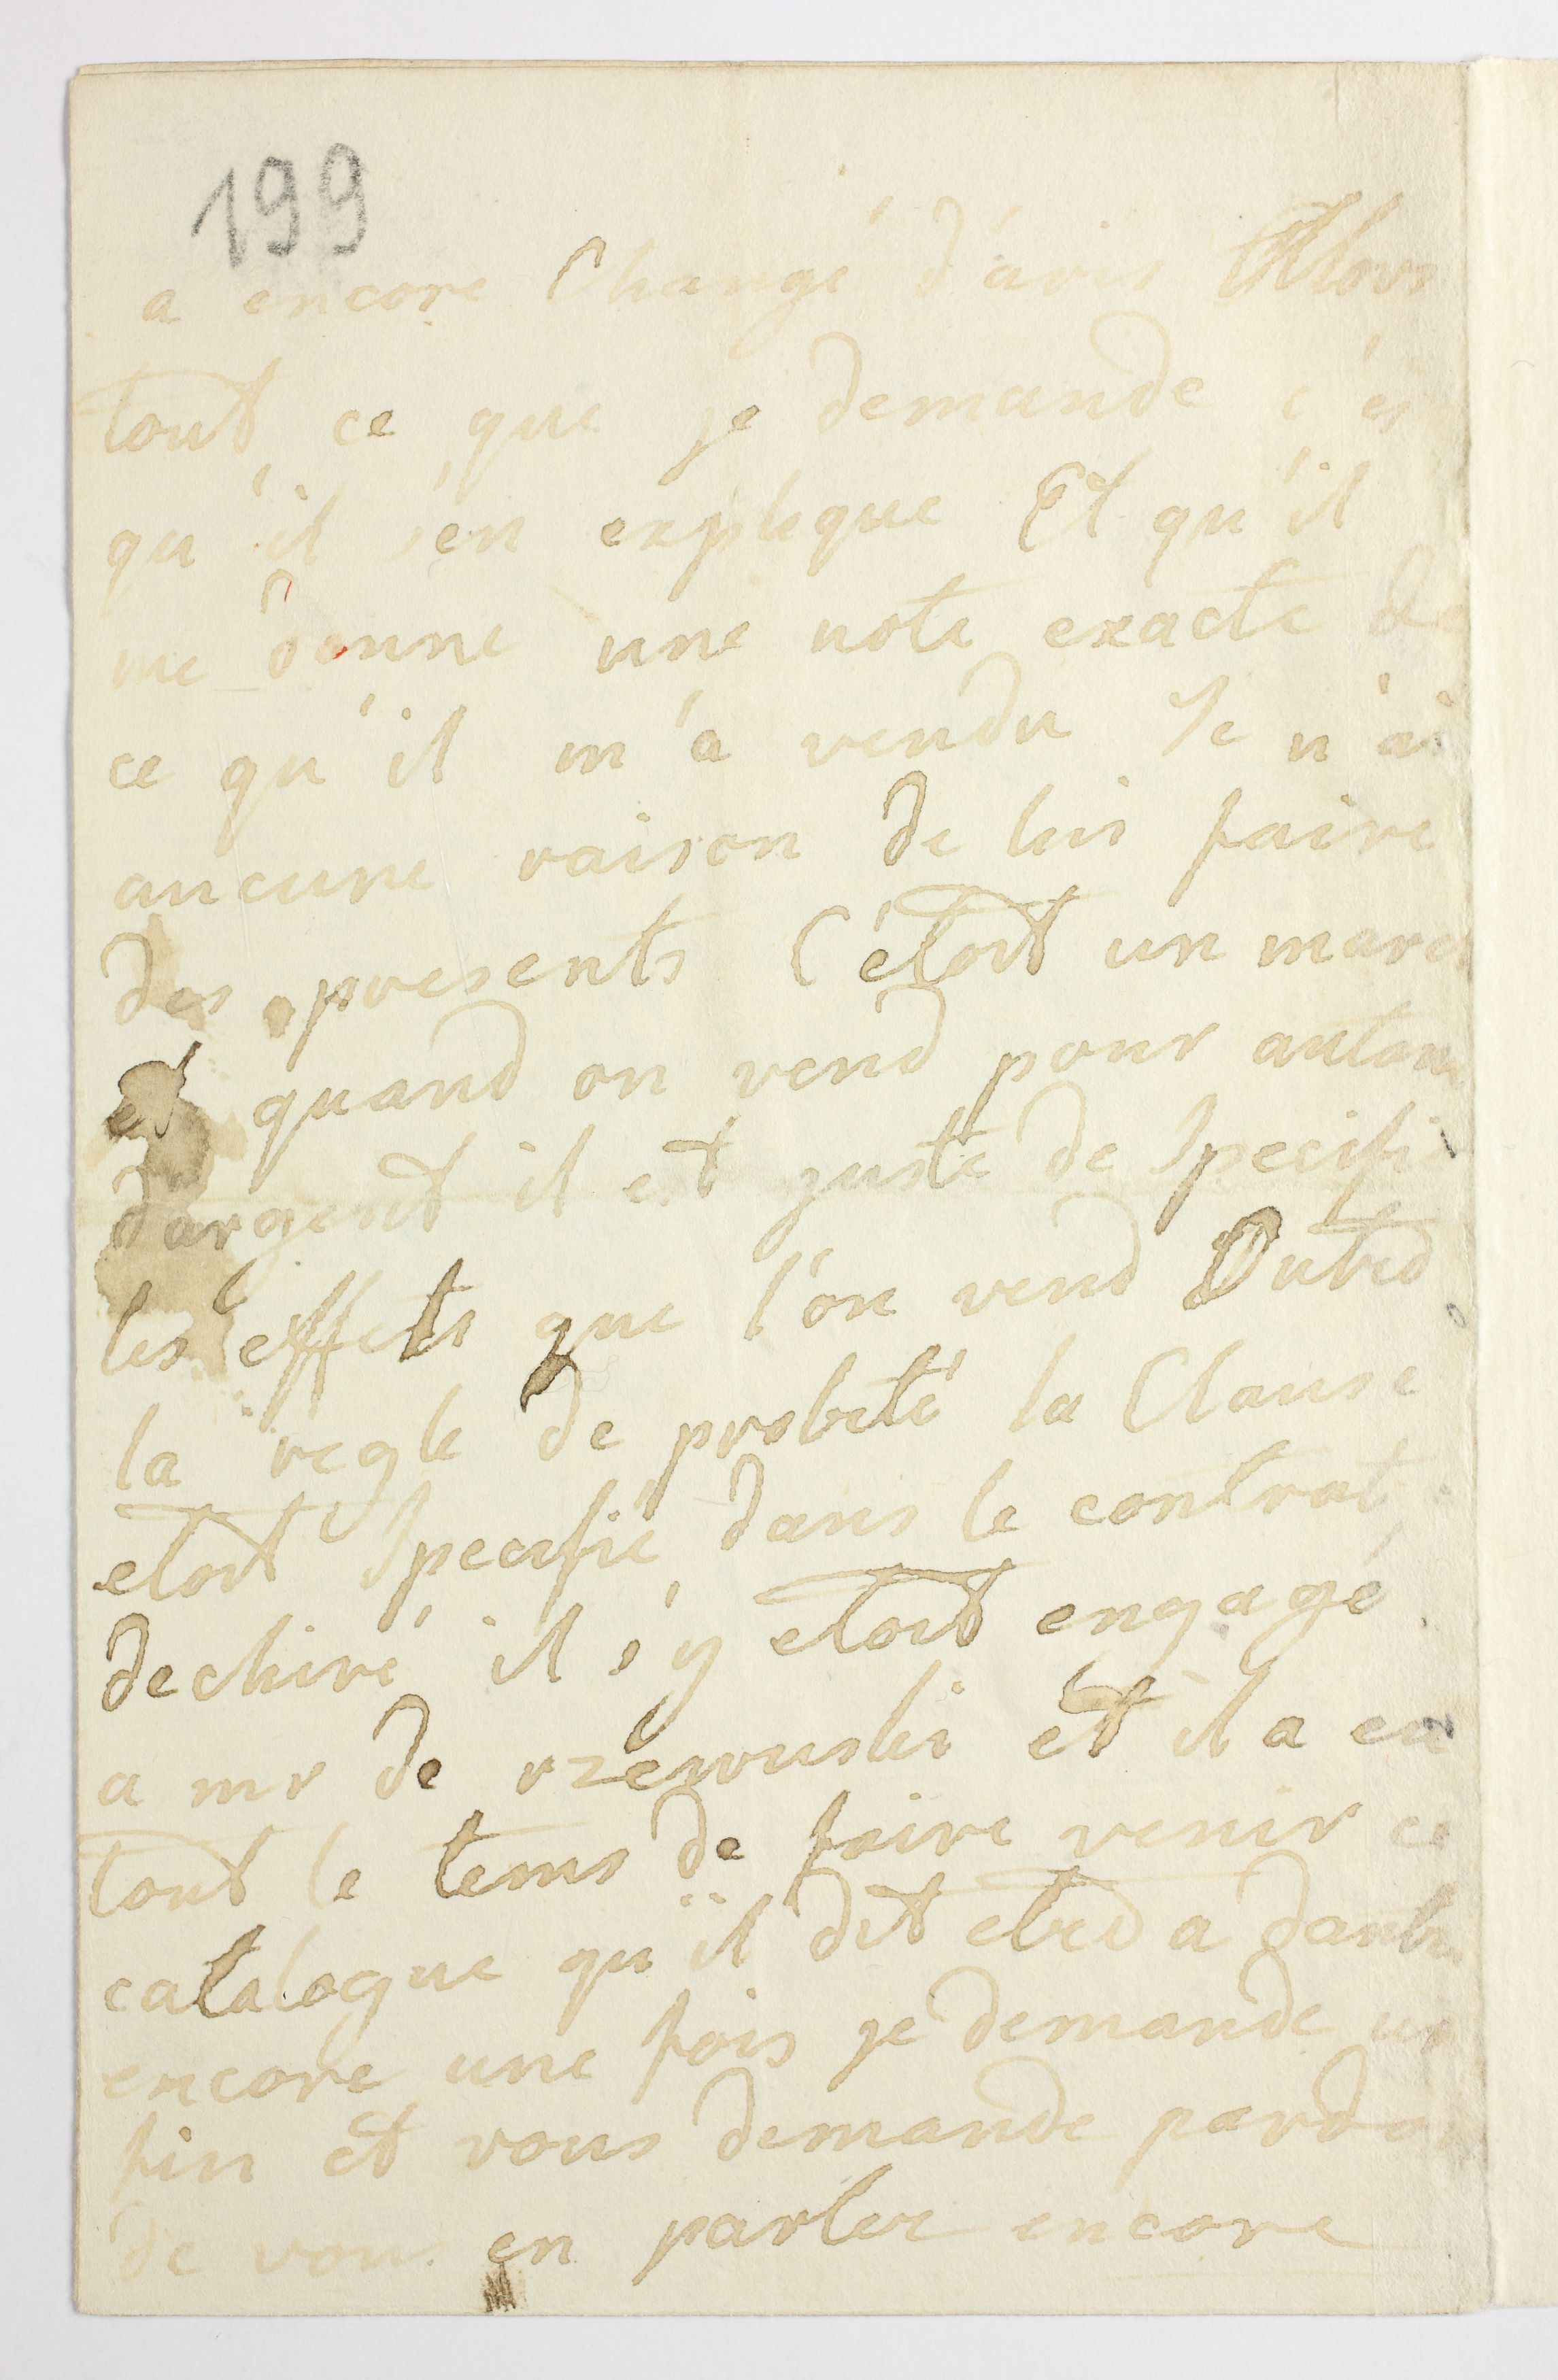 199
a encore Changé d'avis Alors
tout ce que je demande c'es
qu'il s'en explique Et qu'il
me donne une note exacte de
ce qu'il m'a vendu Je n'ai
aucune raison de lui faire
des presents C'étoit un marc
et quand on vend pour autan
dargent il est juste de specifie
les effets que l'on vend Outre
la regle de probité la Clause
etoit specifié dans le contrat
dechiré il s'y etoit engagé
a mr de rzewuski et il a eu
tout le tems de faire venir ce
catalogue qu'il dit etre a dant
encore une fois je demande un
fin et vous demande pardon
de vous en parler encore